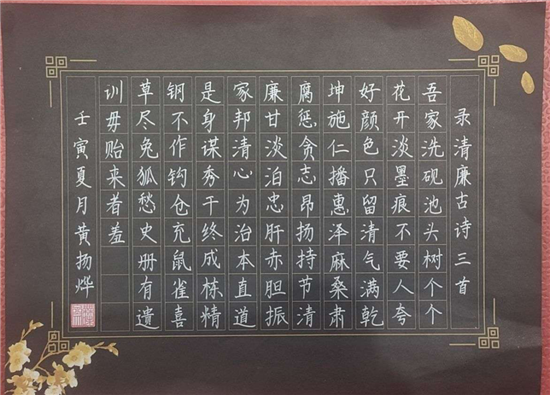 录清廉古诗三首
吾家洗砚池头树个个
花开淡墨痕不要人夸
好颜色只留清气满乾
坤施仁播惠泽麻桑肃
腐惩贪志昂扬持节清
廉甘淡泊忠肝赤胆振
家邦清心为治本直道
是身谋秀干终成栋精
钢不作钩仓充鼠雀喜
草尽兔狐愁史册有遗
训毋贻来者羞
壬寅夏月黄扬烨